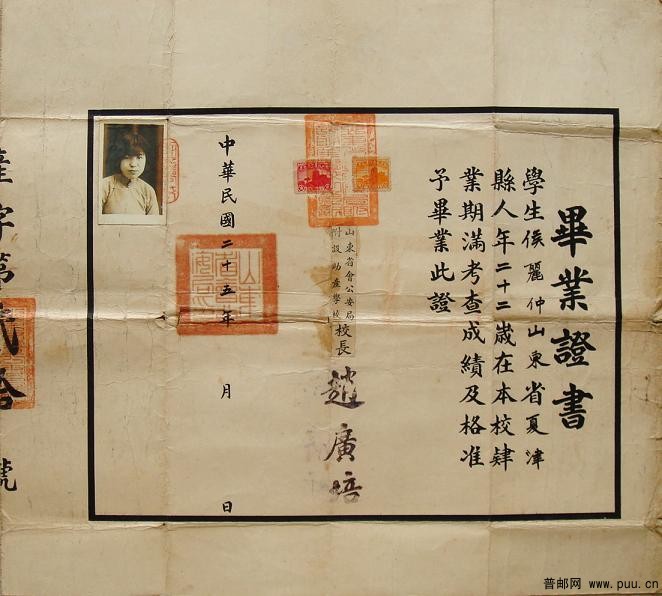 畢業證書
學生侯麗仲山東省夏津
縣人年二十二歲在本校肄
業期滿考查成績及格准
予畢業此證
山東省會公安局
附設助產學校
校長
趙廣培
中華民國二十五年 月 日
產字第貳拾 號
普邮网 www.puu.cn